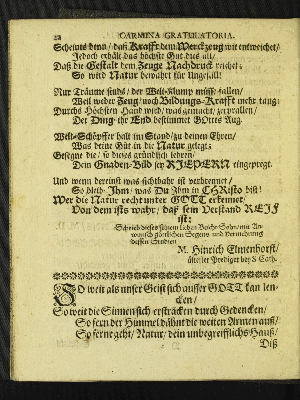 22 CARMINA GRATULATORIA.
Scheints denn / daß Krafft dem Werckzeug nie entweichet /
Jedoch erhält das höchste Gut dies all /
Daß die Gestalt dem Zeuge Nachdruck reichet;
So wird Natur bewahrt für Ungefall!
Nur Träume sinds / der Welt-Klump müsse fallen /
Weil weder Zeug / noch Bildungs-Krafft mehr taug:
Durchs Höchsten Hand wird / was gemacht / zerfallen /
Der Ding' ihr End bestimmet GOttes Aug.
Welt-Schöpffer halt im Stand / zu deinen Ehren /
Was deine Güt in die Natur gelegt;
Gesegne die / so dieses gründlich lehren /
Dein Gnaden-Bild sey RIEPERN eingeprägt.
Und wenn dereinst was sichtbahr ist verbrennet /
So bleib Ihm / was Du Ihm in CHRisto bist!
Wer die Natur recht unter GOTT erkennet /
Von dem ists wahr, daß sein Verstand REIF
ist:
Schriebs diesen seinem lieben Beicht-Sohn / mit An-
wunsch göttlichen Segens und Vermehrung
dessen Studien
M. Hinrich Elmenhorst /
ältester Prediger bey S. Cath.
SO weit als unser Geist sich ausser GOTT kan len-
cken /
So weit die Sinnen sich erstrecken durch Gedencken /
So fern der Himmel dähnt die weiten Armen auß /
So ferne geht / Natur / dein unbegreifflichs Hauß /
Diß